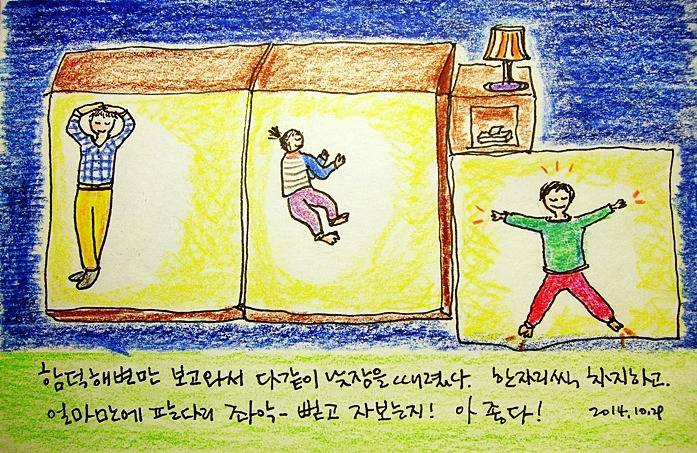 함덕해변만 보고와서 다같이 낮잠을 때렸다. 한자리씩 차지하고.
얼마만에 팔다리 좌악- 뻗고 자보는지! 아 좋다! 2014.10.29